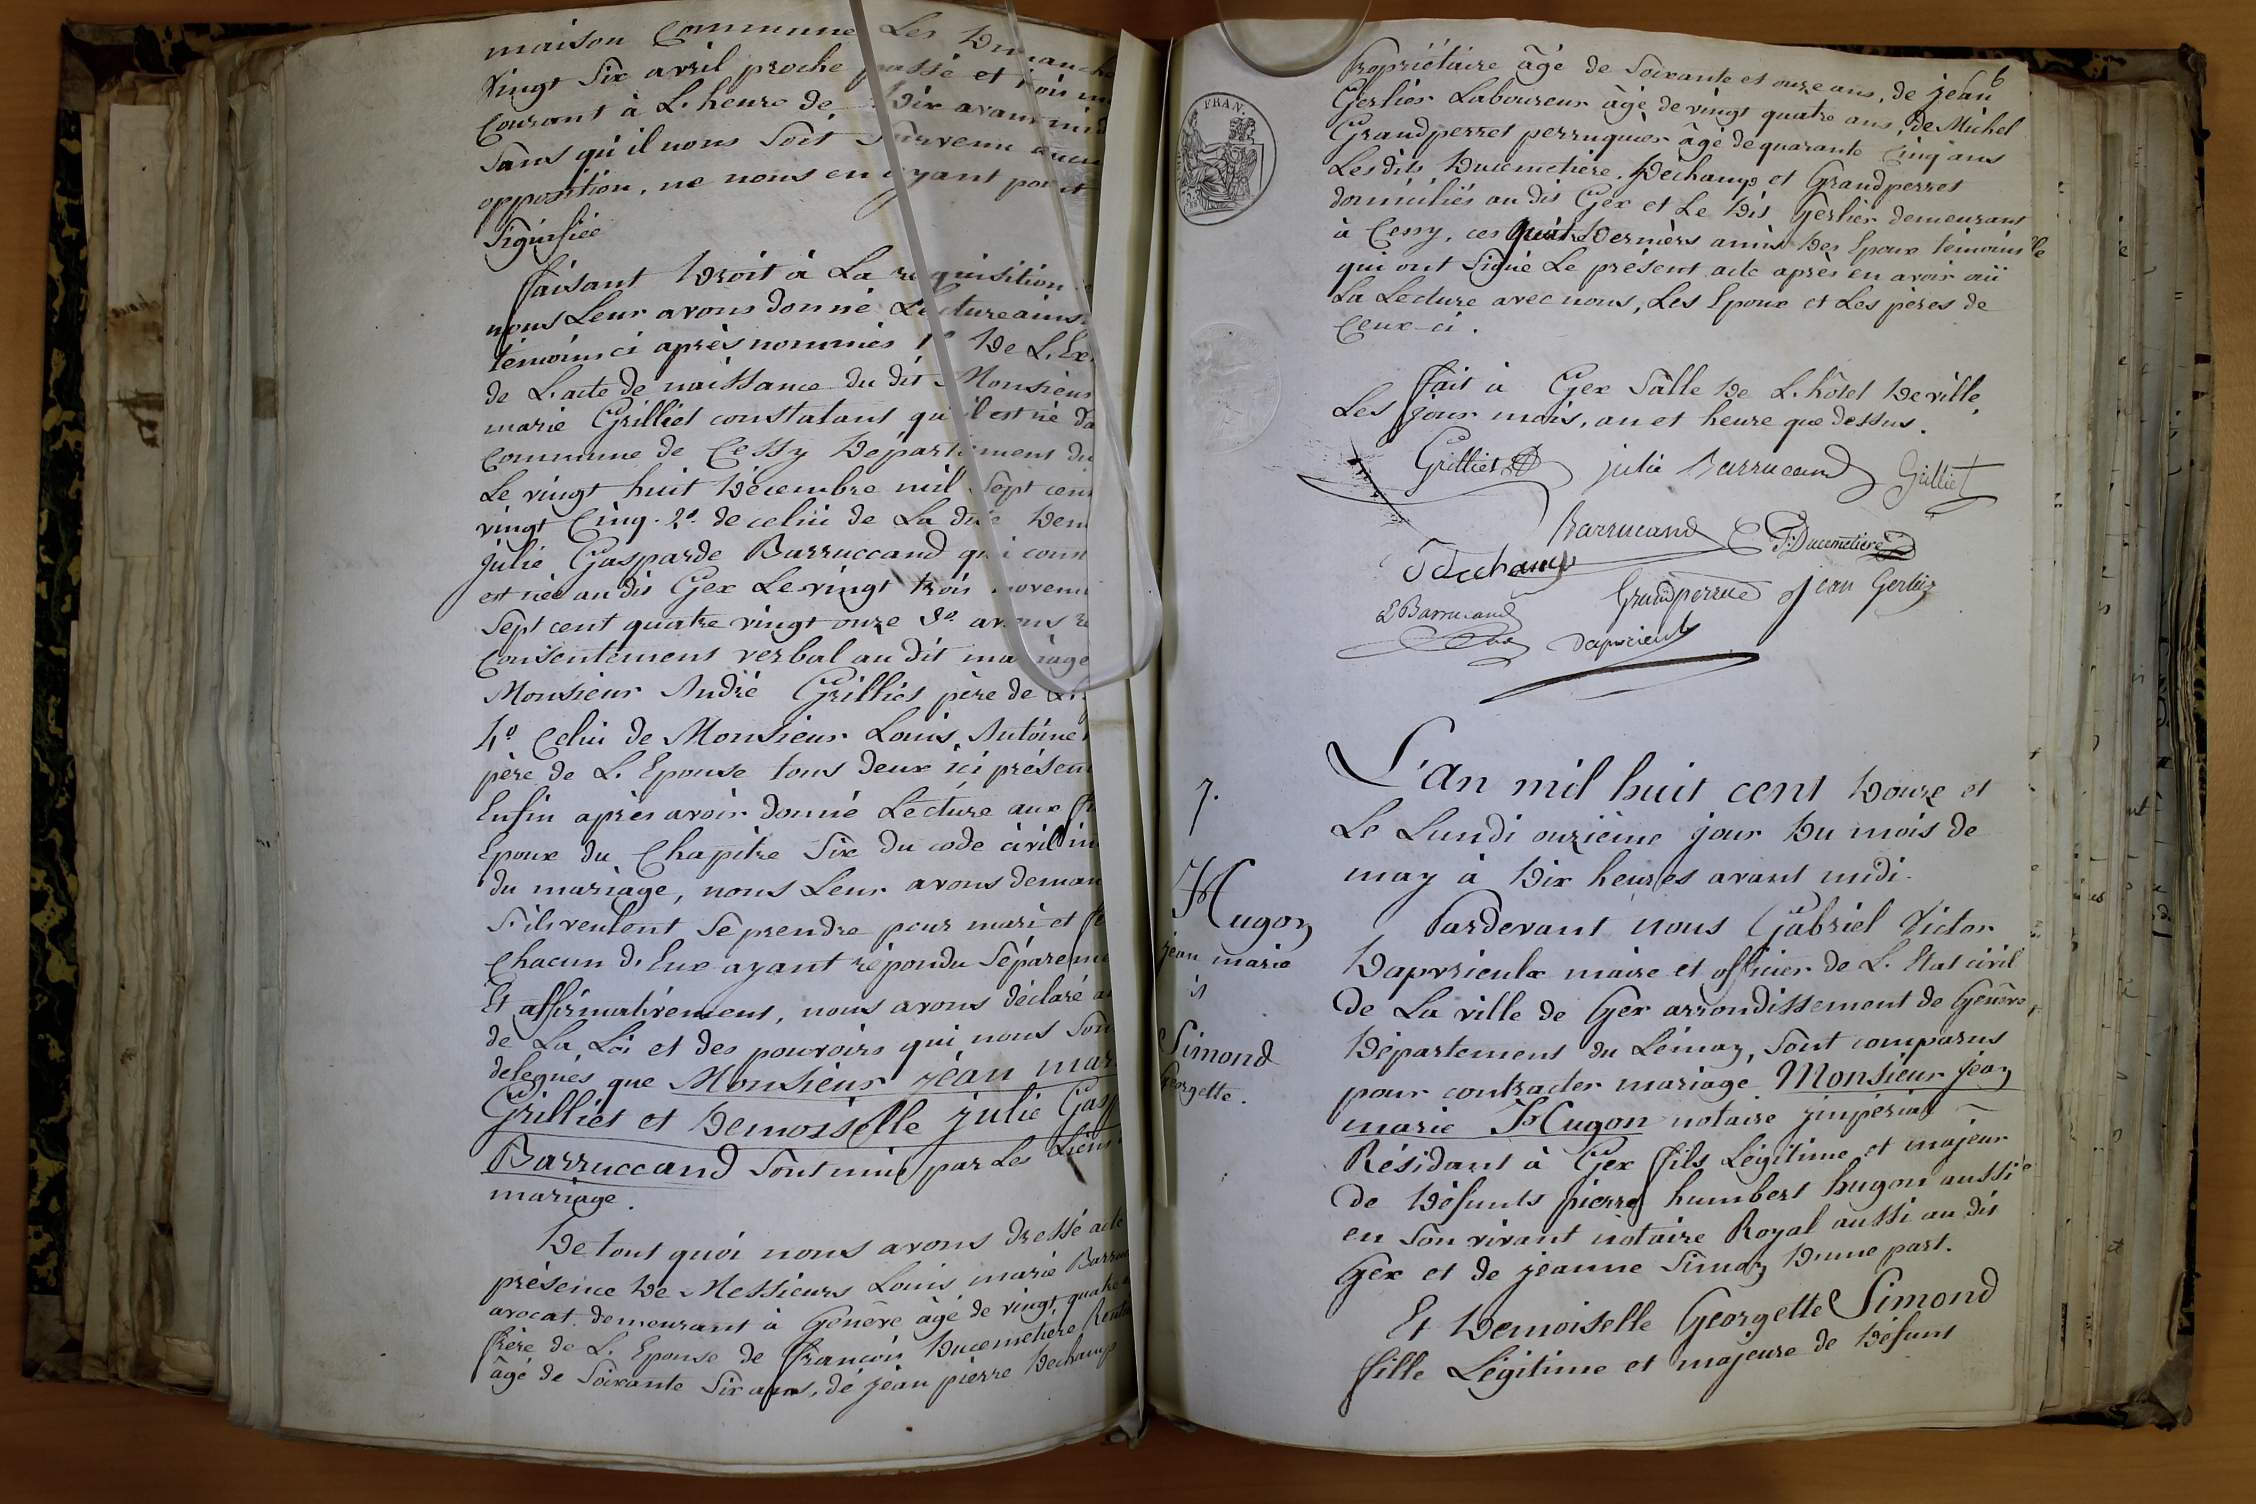 maison Commune Les Dimanche
vingt Six avril proche passé et trois
Courant à L. heure de Dix avant mid
Sans qu'il nous Soit Survenu aucu
opposition, ne nous en ayant point
Signifiée
faisant Droit à La requisition
nous Leur avons donné Lecture ainsi
témoins ci après nommés 1° De L. Ex
de L. acte de naissance du dit Monsieur
marie Grilliet constatant qu'il est né Da
Commune de Cessy Département du
Le vingt huit Décembre mil Sept cent
vingt Cinq. 2° de celui de La dite Dem
julie Gasparde Barruccand qui const
est née au dit Gex Le vingt trois novem
Sept cent quatre vingt onze 3° avons
Consentement verbal au dit mariage
Monsieur André Grilliet père de L.
4° Celui de Monsieur Louis Antoine
père de L. Epouse tous deux ici présen
Enfin après avoir donné Lecture aux
Epoux du Chapitre Six du code civil in
du mariage, nous Leur avons deman
S'ils veulent Se prendre pour mari et fe
Chacun d. Eux ayant répondu Sépareme
Et affirmativement, nous avons déclaré au
de La Loi et des pouvoirs qui nous Son
delegués que Monsieur jéan mar
Grilliet et Demoiselle julie Gasp
Barruccand Sont unis par Les Liens
mariage.
De tout quoi nous avons dressé acte
présence De Messieurs Louis marie Barru
avocat demeurant à Genève âgé de vingt quatre
frère de L. Epouse de françois Ducimetière Renti
âgé de Soixante Six ans, de jean pierre Dechamp
6
Propriétaire âgé de Soixante et onze ans, de jéan
Gerlier Laboureur âgé de vingt quatre ans, de Michel
Grandperret perruquier âgé de quarante Cinq ans
Lesdits Ducimetière, Dechamp et Grandperret
domiciliés au dit Gex et Le Dit Gerlier demeurant
à Cessy, ces quatre Derniers amis Des Epoux témoins
qui ont Signé Le présent acte après en avoir ouï
La Lecture avec nous, Les Epoux et Les pères de
Ceux-ci.
FRAN
fait à Gex Salle De L. hôtel De ville,
Les jour mois, an et heure que dessus.
Grilliet julie Barrucand Grilliet
Barrucand F. Ducimetiere
Dechamp
Grandperret jean Gerlier
L Barrucand
Daprieulx
L'an mil huit cent Douze et
Le Lundi onzième jour Du mois de
may à Dix heures avant midi.
7.
Hugon
jéan marie
et
Simond
Georgette.
Pardevant nous Gabriel Victor
Daprieulx maire et officier de L. Etat civil
De La ville de Gex arrondissement de Genève,
Département du Léman, Sont comparus
pour contracter mariage Monsieur jéan
marie Hugon notaire jmpérial
Résidant à Gex fils Légitime et majeur
De Défunts pierre humbert hugon aussi
en Son vivant notaire Royal aussi au dit
Gex et de jéanne Simon D'une part.
Et Demoiselle Georgette Simond
fille Légitime et majeure de Défunt